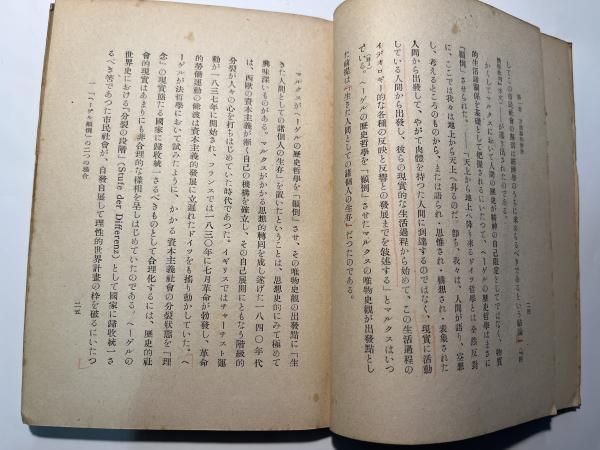 二四
してこの市民社會の解剖は經濟學のうちに求めらるべきであるという結論」
かくしてマルクスにおいて人間の歷史が精神の自己限定としてではなく、物質
的生活關係を基礎として把握されるにいたつて、ヘーゲルの歷史哲學はまさに
「顚倒」させられた。――「天上から地上へ降り來るドイツ哲學とは全然反對
に、ここでは我々は地上から天上へ昇るのだ。卽ち、我々は、人間が語り、妄想
し、考えるところのものから、または語られ・思惟され・構想され・表象された
人間から出發して、やがて肉體を持つた人間に到達するのではなく、現實に活動
している人間から出發し、彼らの現實的な生活過程から始めて、この生活過程の
イデオロギー的な各種の反映と反響との發展までを敍述する」とマルクスはいつ
ている。ヘーゲルの歷史哲學を「顚倒」させたマルクスの唯物史觀が出發點とし
た前提は「生きた人間としての諸個人の生存」だつたのである。
マルクスがヘーゲルの歷史哲學を「顚倒」させ、その唯物史觀の出發點に「生
きた人間としての諸個人の生存」を置いたということは、思想史的にみて極めて
興味深いものがある。マルクスがかかる思想的轉回を成し遂げた一八四〇年代
は、西歐の資本主義が漸く自己の機構を確立し、その自己展開にともなう階級的
分裂が人々の心を打ちはじめていた時代であつた。イギリスではチャーチスト運
動が一八三七年に開始され、フランスでは一八三〇年に七月革命が勃發し、革命
的勞働運動の激波は資本主義的發展に立遲れたドイツをも搖り動かしていた。ヘ
ーゲルが法哲學において試みたように、かかる資本主義社會の分裂狀態を「理
念」の現實態たる國家に歸收統一さるべきものとして合理化するには、歷史的社
會的現實はあまりにも非合理的な樣相を呈しはじめていたのである。ヘーゲルの
世界史における「分裂の段階」(Stufe der Differenz)として國家に歸收統一さ
るべき筈であつた市民社會が、自發自展して理性的世界計畫の枠を破るにいたつ
一 「ヘーゲル顚倒」の二つの場合
二五